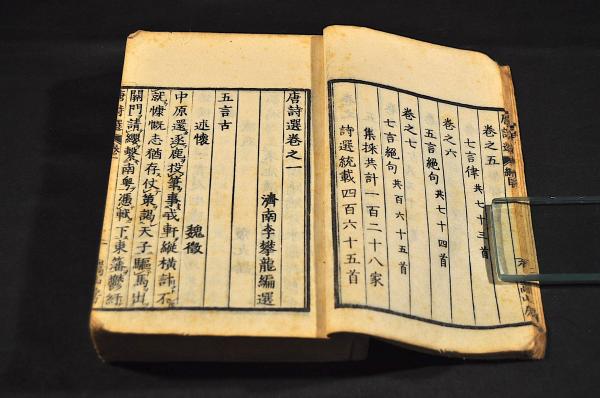 卷之五
七言律 共七十三首
卷之六
五言絕句 共七十四首
卷之七
七言絕句 共百六十五首
集採共計一百二十八家
詩選統載四百六十五首
唐詩選卷之一
濟南李攀龍編選
五言古
述懷
魏徵
中原還逐鹿投筆事戎軒縱橫計不
就慷慨志猶存仗策謁天子驅馬出
關門請纓繫南粵憑軾下東藩鬱紆
唐詩選